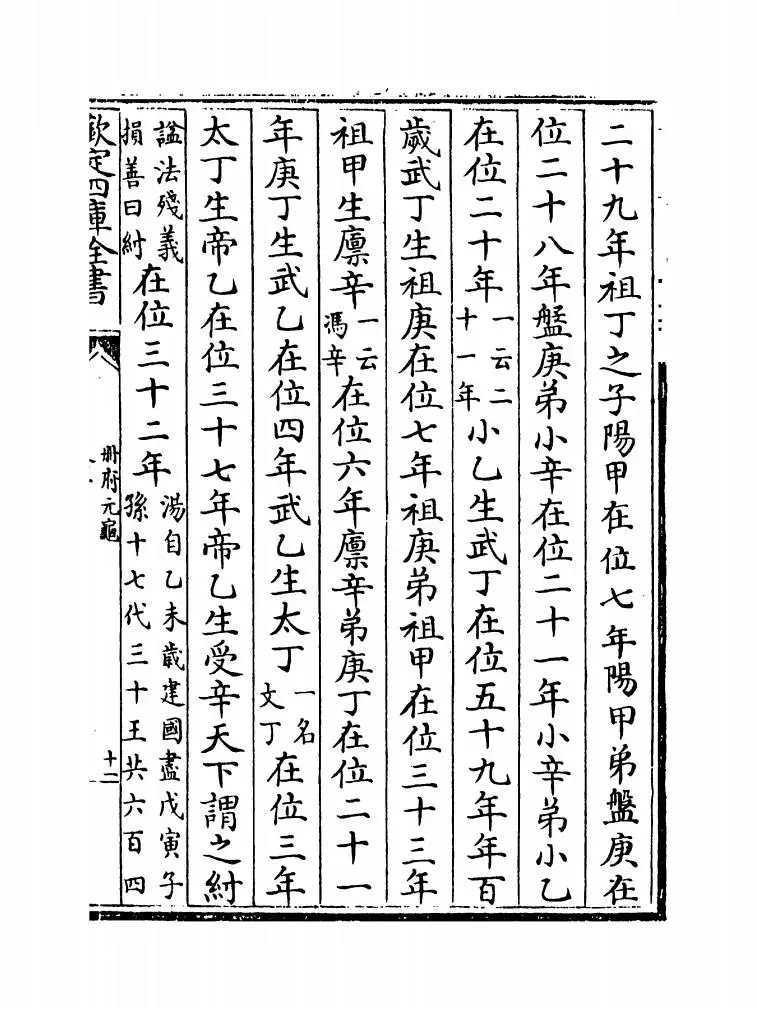 二十九年祖丁之子陽甲在位七年陽甲弟盤庚在
位二十八年盤庚弟小辛在位二十一年小辛弟小乙
在位二十年一云二十一年小乙生武丁在位五十九年年百
歲武丁生祖庚在位七年祖庚弟祖甲在位三十三年
祖甲生廪辛一云馮辛在位六年廪辛弟庚丁在位二十一
年庚丁生武乙在位四年武乙生太丁一名文丁在位三年
太丁生帝乙在位三十七年帝乙生受辛天下謂之紂
諡法殘義損善曰紂在位三十二年湯自乙未歲建國盡戊寅子孫十七代三十王共六百四
欽定四庫全書
冊府元龜
十二